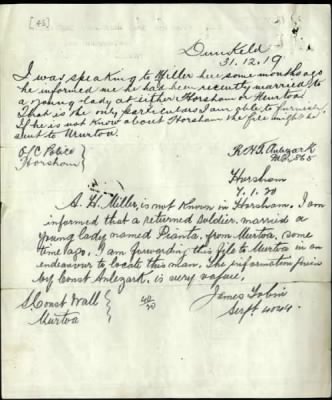 [45]
Dunkeld
31.12.19
I was speaking to Miller here some months ago
he informed me he had been recently married to
a young lady at either Horsham or Murtoa
That is the only particulars I am able to furnish
If he is not known about Horsham the file might be
sent to Murtoa.
O/C Police
Horsham
Horsham
7.1.20
A. H. Miller, is not known in Horsham. I am
informed that a returned soldier, married a
young lady named Pianta, from Murtoa, some
time ago. I am forwarding this file to Murtoa in an
endeavour to locate this man. The information given
by Const Anlezark, is very vague.
S. Const Wall
Murtoa
James Tobin
Sergt. 4044.